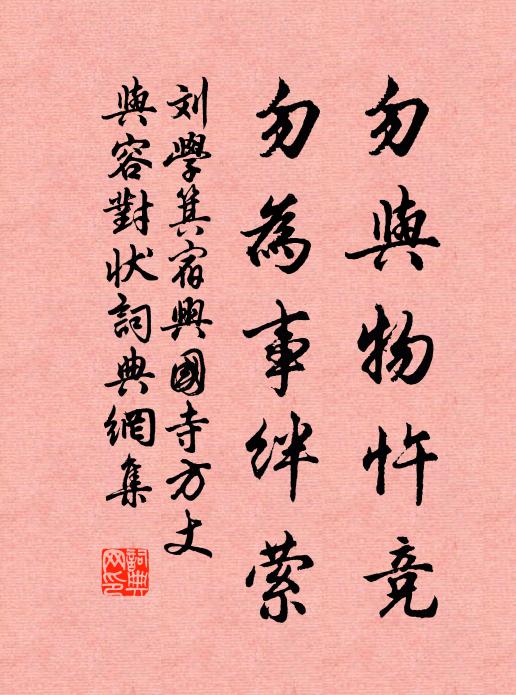 勿與物忤竞
勿為事絆萦
刘學箕宿興國寺方丈
與容對状詞典網集
詞典网印